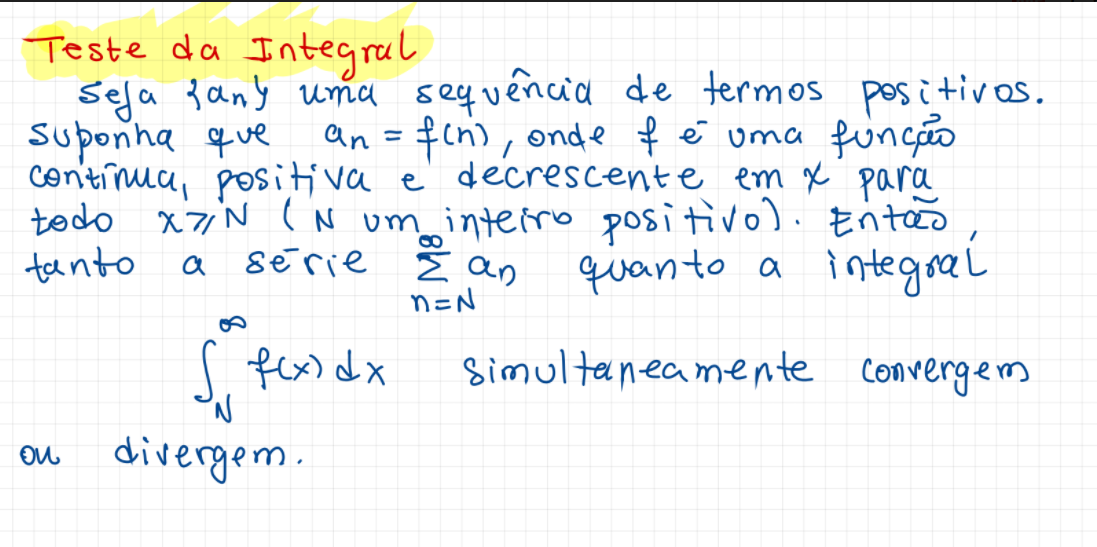 Teste da Integral
Seja {an} uma sequência de termos positivos.
Suponha que an = f(n), onde f é uma função
contínua, positiva e decrescente em x para
todo x ≥ N ( N um inteiro positivo). Então,
tanto a série ∞ Σ n=N an quanto a integral
∫ ∞ N f(x) dx simultaneamente convergem
ou divergem.